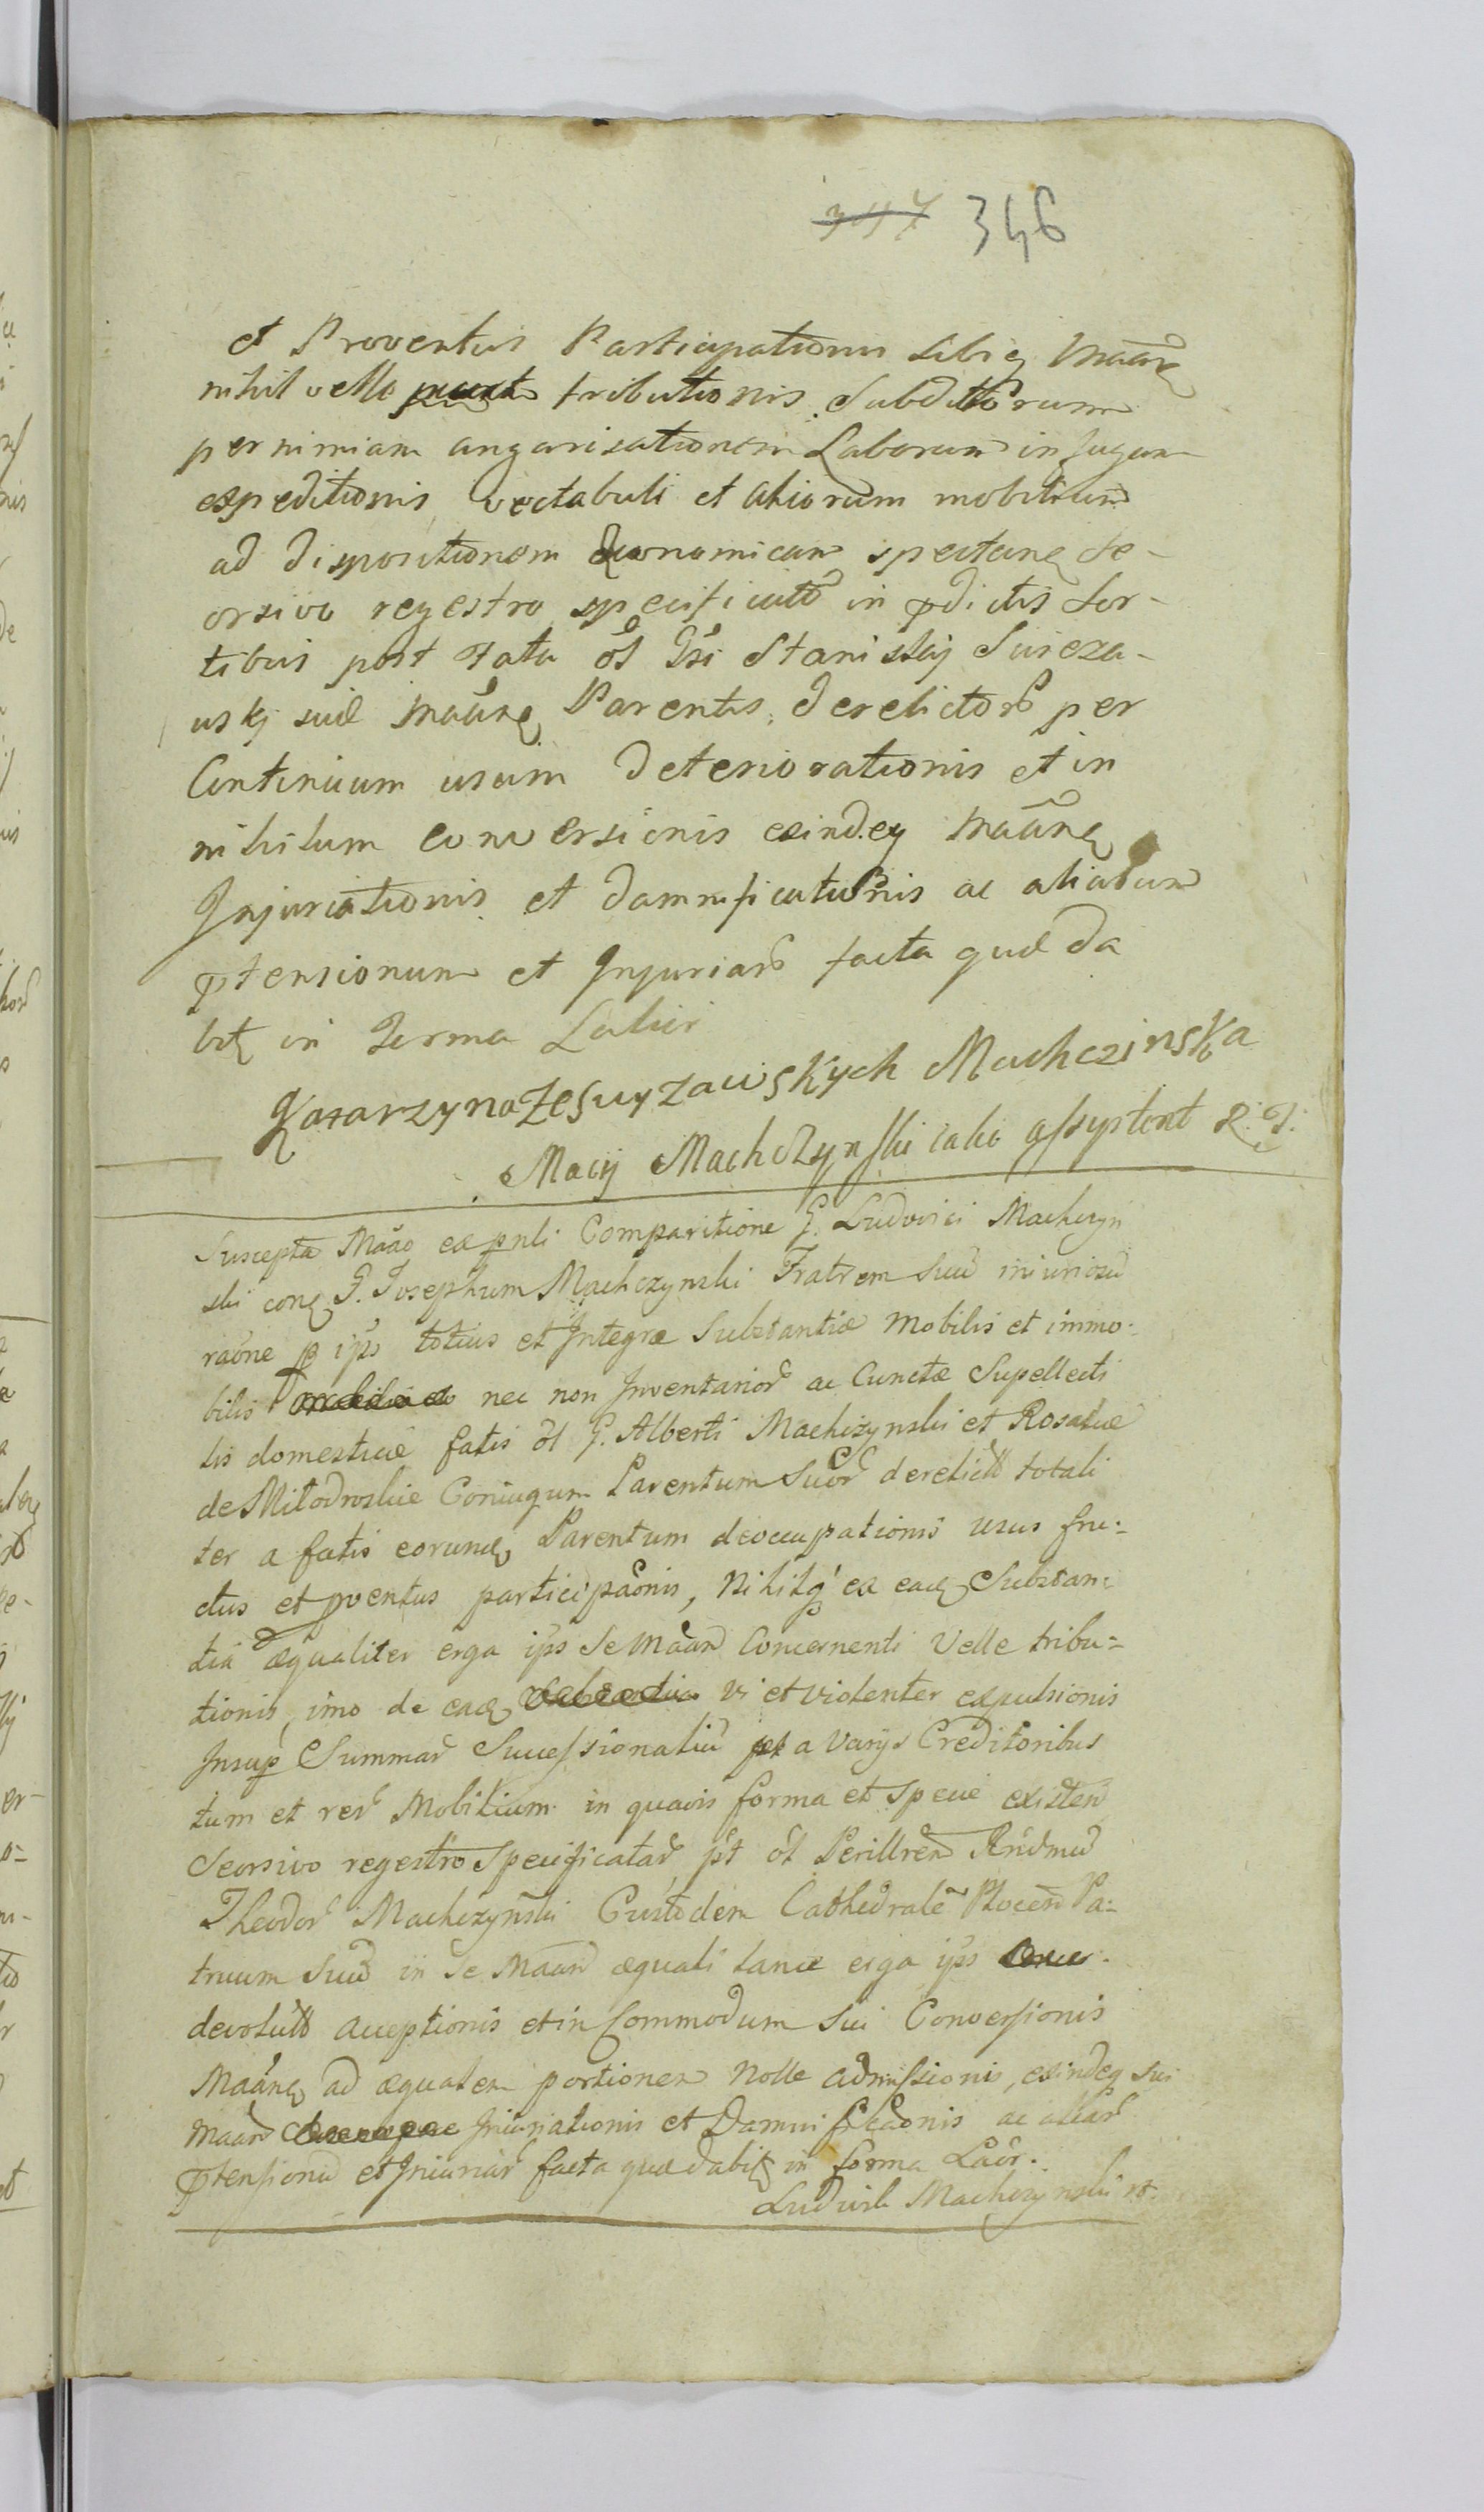 347 346
et Proventus Participationis sibiq Maāe
nihil velle tributionis Subditorum
per nimiam angarisationem Laborum in jugum
expeditionis, vectabuli et aliorum mobilium
ad dispositionem æconomicam spectanę se-
orsivo regestro specificatō in pdictis Sor-
tibus post Fata ol Gsi Stanislaj Suseza-
uskj suæ Maānę Parentis derelictorū per
Continuum usum deteriorationis et in
nihilum conversionis exindeq Maānę
Injuriationis et damnificationis ac aliarum
ptensionum et Injuriarū facta quæ da
btę in Forma Latiori
Katarzyna ze Suyzawskych Machczinska
Macij Machczynski iako assystent R: T:
Suscepta Maāo ex pnti Comparitione G. Ludovici Machczyn
ski conę G. Josephum Machczynski Fratrem suū iniuriosū
raōne p ips totius et Integræ Substantiæ Mobilis et immo-
bilis nec non Inventariorū ac Cunctæ Supellecti
lis domesticæ fatis ol G. Alberti Machczynski et Rosaliæ
de Miłodroskie Coniugum Parentum Suorū derelictū totali
ter a fatis eorundę Parentum deoccupationis usus fru-
ctus et pventus participaōnis, Nihilq ex eadę Substan-
tia æqualiter erga ips Se Maānā Concernenti Velle tribu-
tionis, imo de eadę vi et violenter expulsionis
Insup Summarū Successionaliū a Varijs Creditoribus
tum et rerū Mobilium in quavis forma et specie existen
Seorsivo regestro Specificatarū, pt ol Perillrem Rndmū
Theodorū Machczynski Custodem Cathedralē Plocen Pa-
truum Suū in Se Maānā æquali lance erga ips
devolutū acceptionis et in Commodum sui Conversionis
Maānę ad æqualem portionem Nolle admissionis, exindeq sui
Maānā Iniuriationis et Damnificaōnis ac aliarū
ptensionū et Iniuriarū facta quæ dabitę in forma Laōr.
Ludwik Machczynski